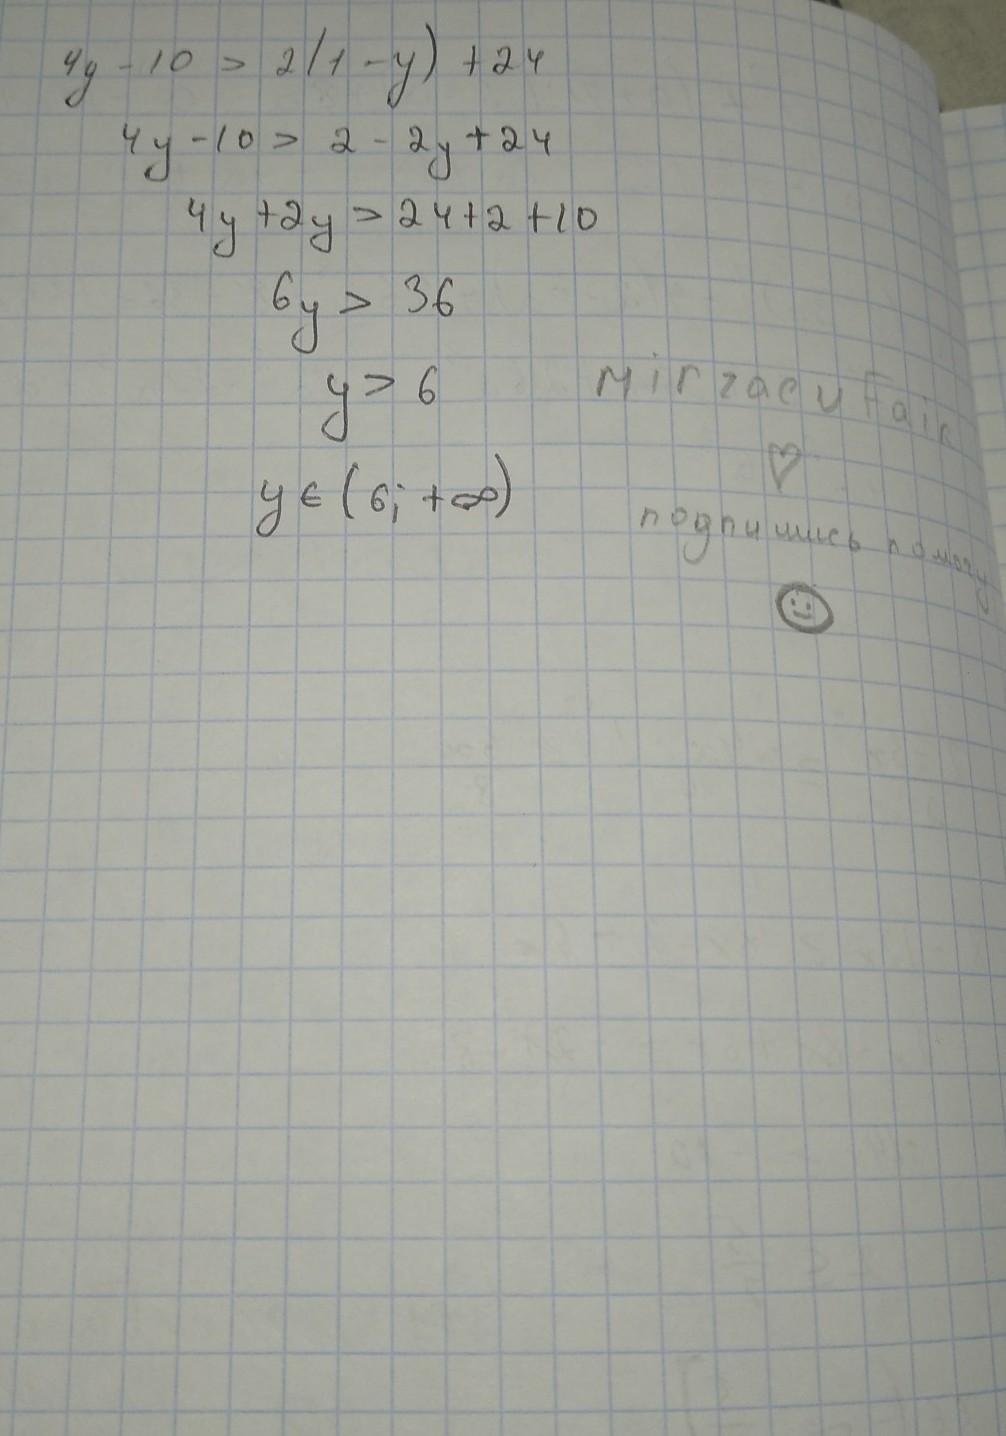 4y - 10 > 2(1 - y) + 24
4y - 10 > 2 - 2y + 24
4y + 2y > 24 + 2 + 10
6y > 36
y > 6
y ∈ (6; +∞)
♡
подпишись помогу